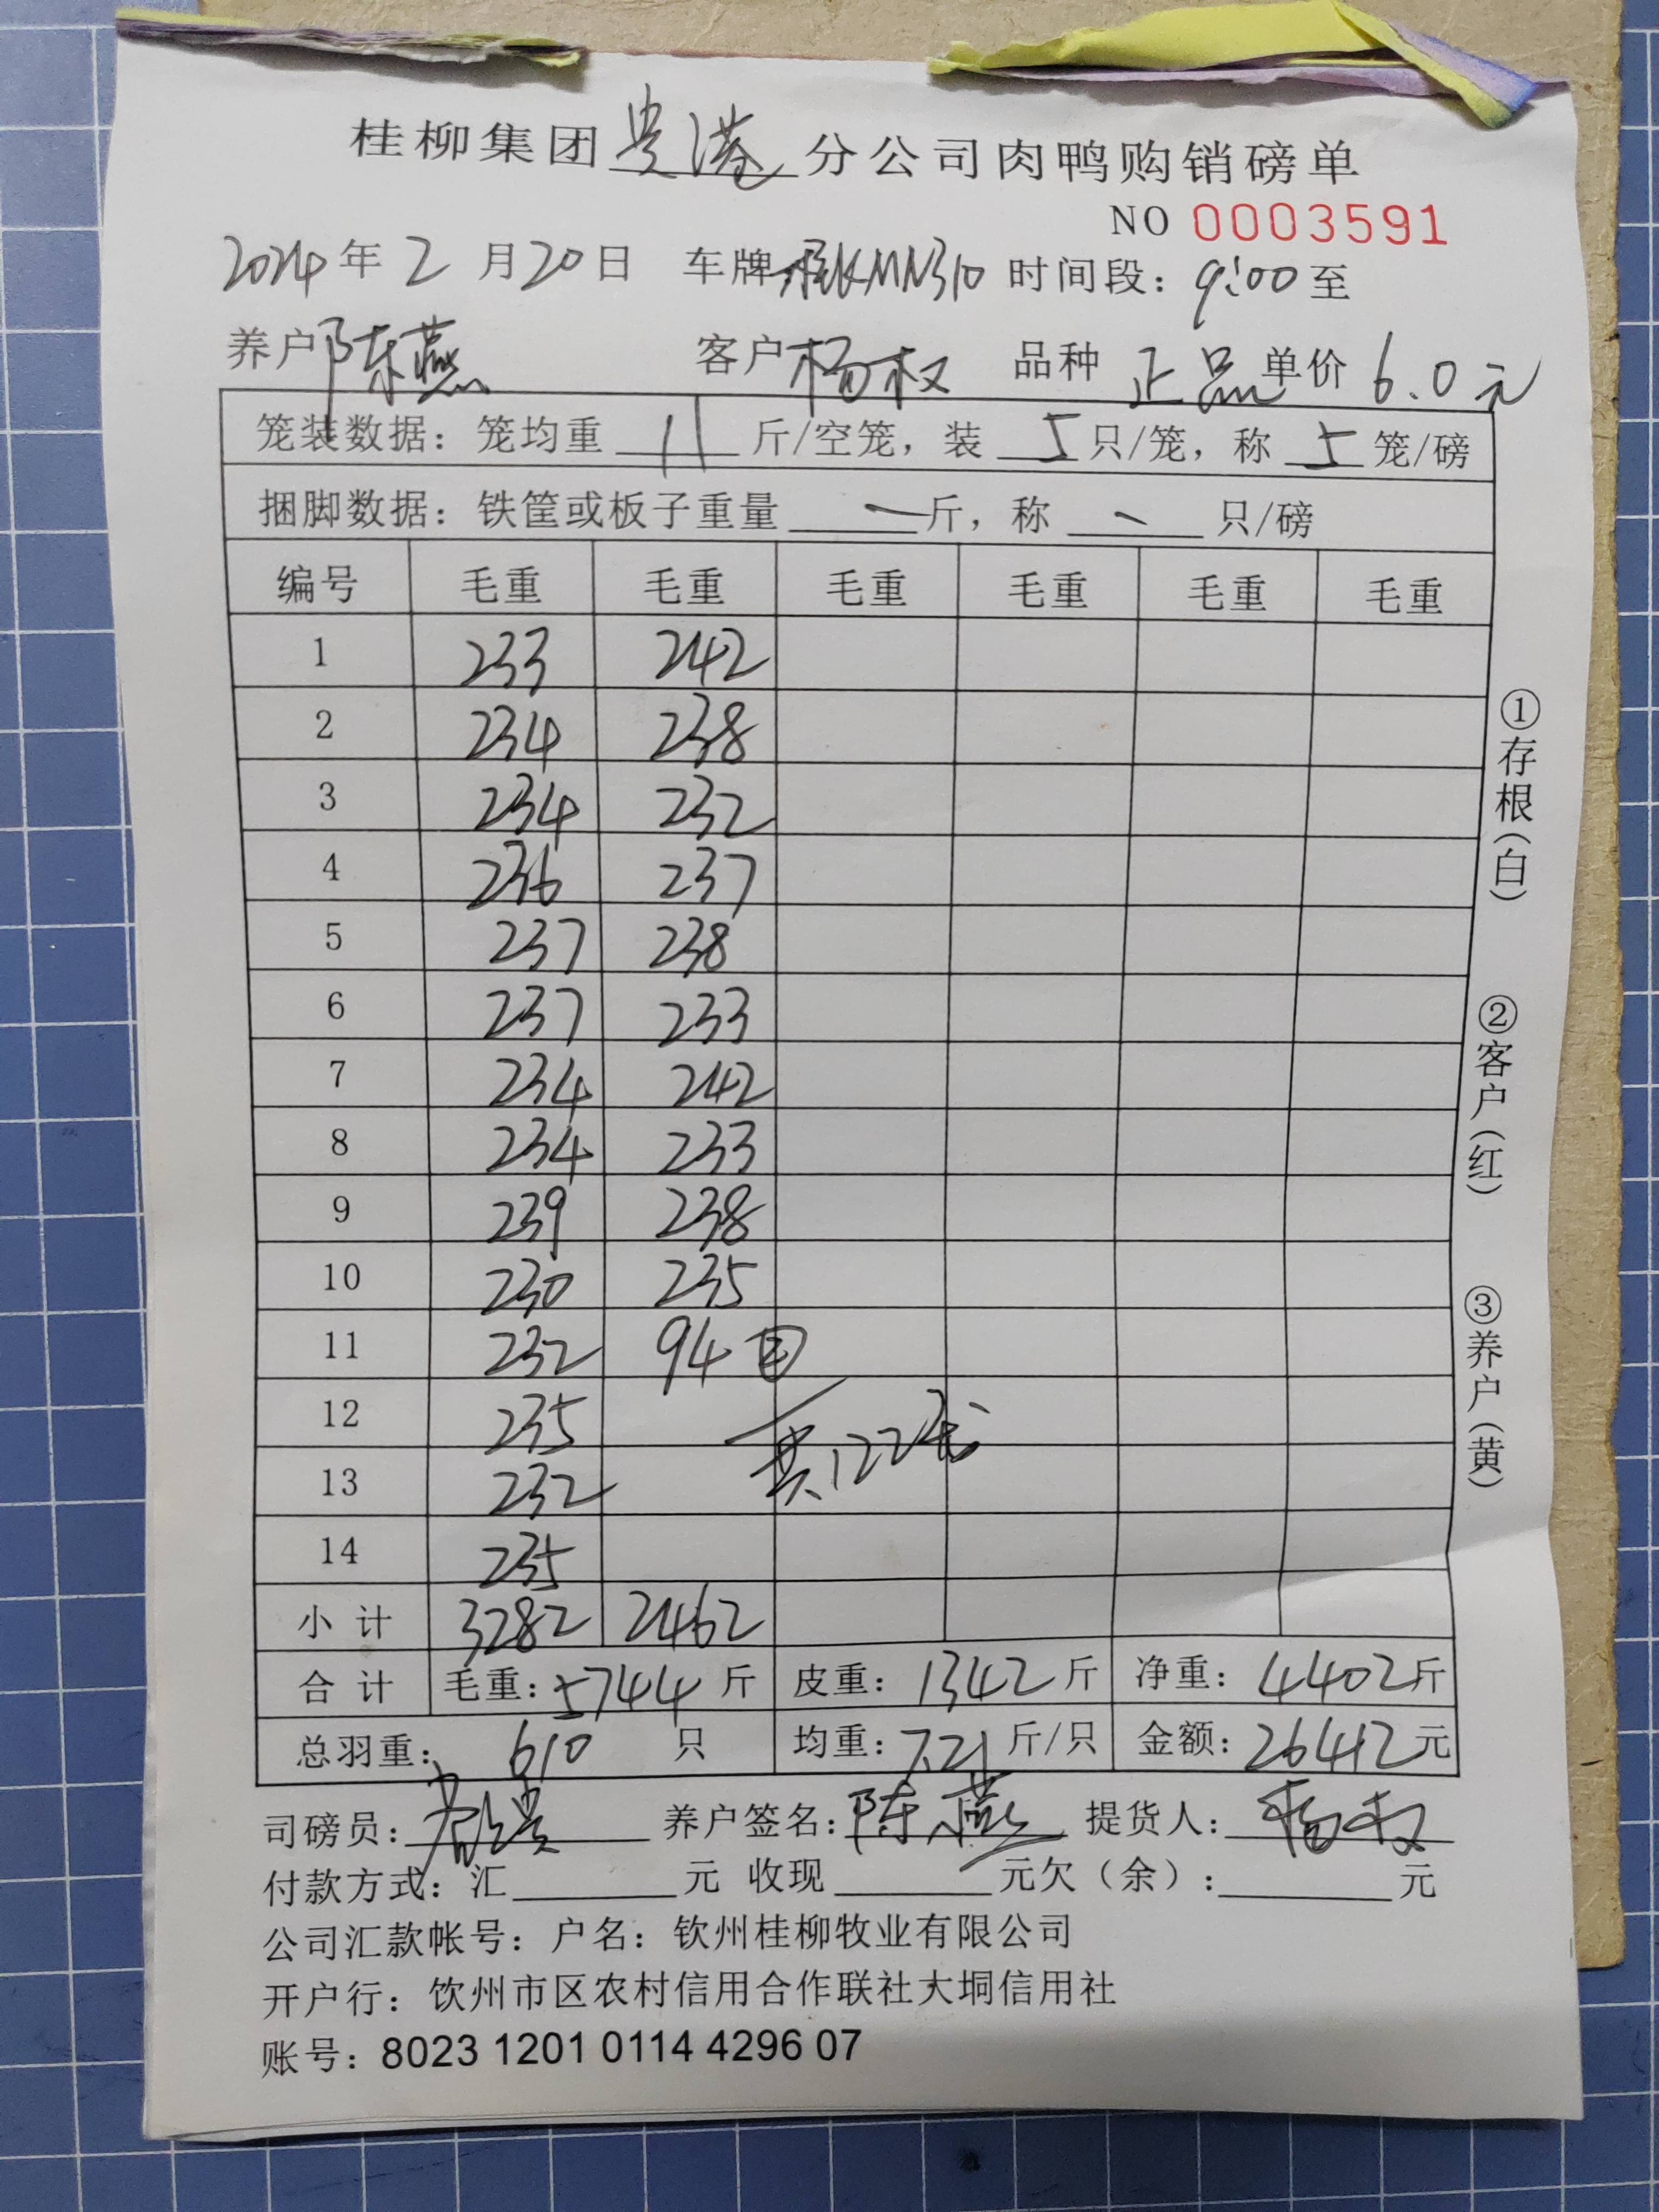 桂柳集团贵港分公司肉鸭购销磅单
NO 0003591
2024年2月20日 车牌桂KMN310 时间段：9:00至
养户陈燕 客户杨权 品种 正品 单价 6.0元
笼装数据：笼均重 11 斤/空笼，装 5 只/笼，称 5 笼/磅
捆脚数据：铁筐或板子重量 一 斤，称 一 只/磅
编号 毛重 毛重 毛重 毛重 毛重 毛重
1 233 242
2 234 238
3 234 232
4 236 237
5 237 238
6 237 233
7 234 242
8 234 233
9 239 238
10 230 235
11 232 94 ②
12 235
共122笼
13 232
14 235
小计 3282 2462
合计 毛重：5744斤 皮重：1342斤 净重：4402斤
总羽重：610 只 均重：7.21斤/只 金额：26412元
司磅员： 养户签名：陈燕 提货人：杨权
付款方式：汇 元 收现 元欠（余）： 元
公司汇款帐号：户名：钦州桂柳牧业有限公司
开户行：饮州市区农村信用合作联社大垌信用社
账号：8023 1201 0114 4296 07
①存根（白）
②客户（红）
③养户（黄）